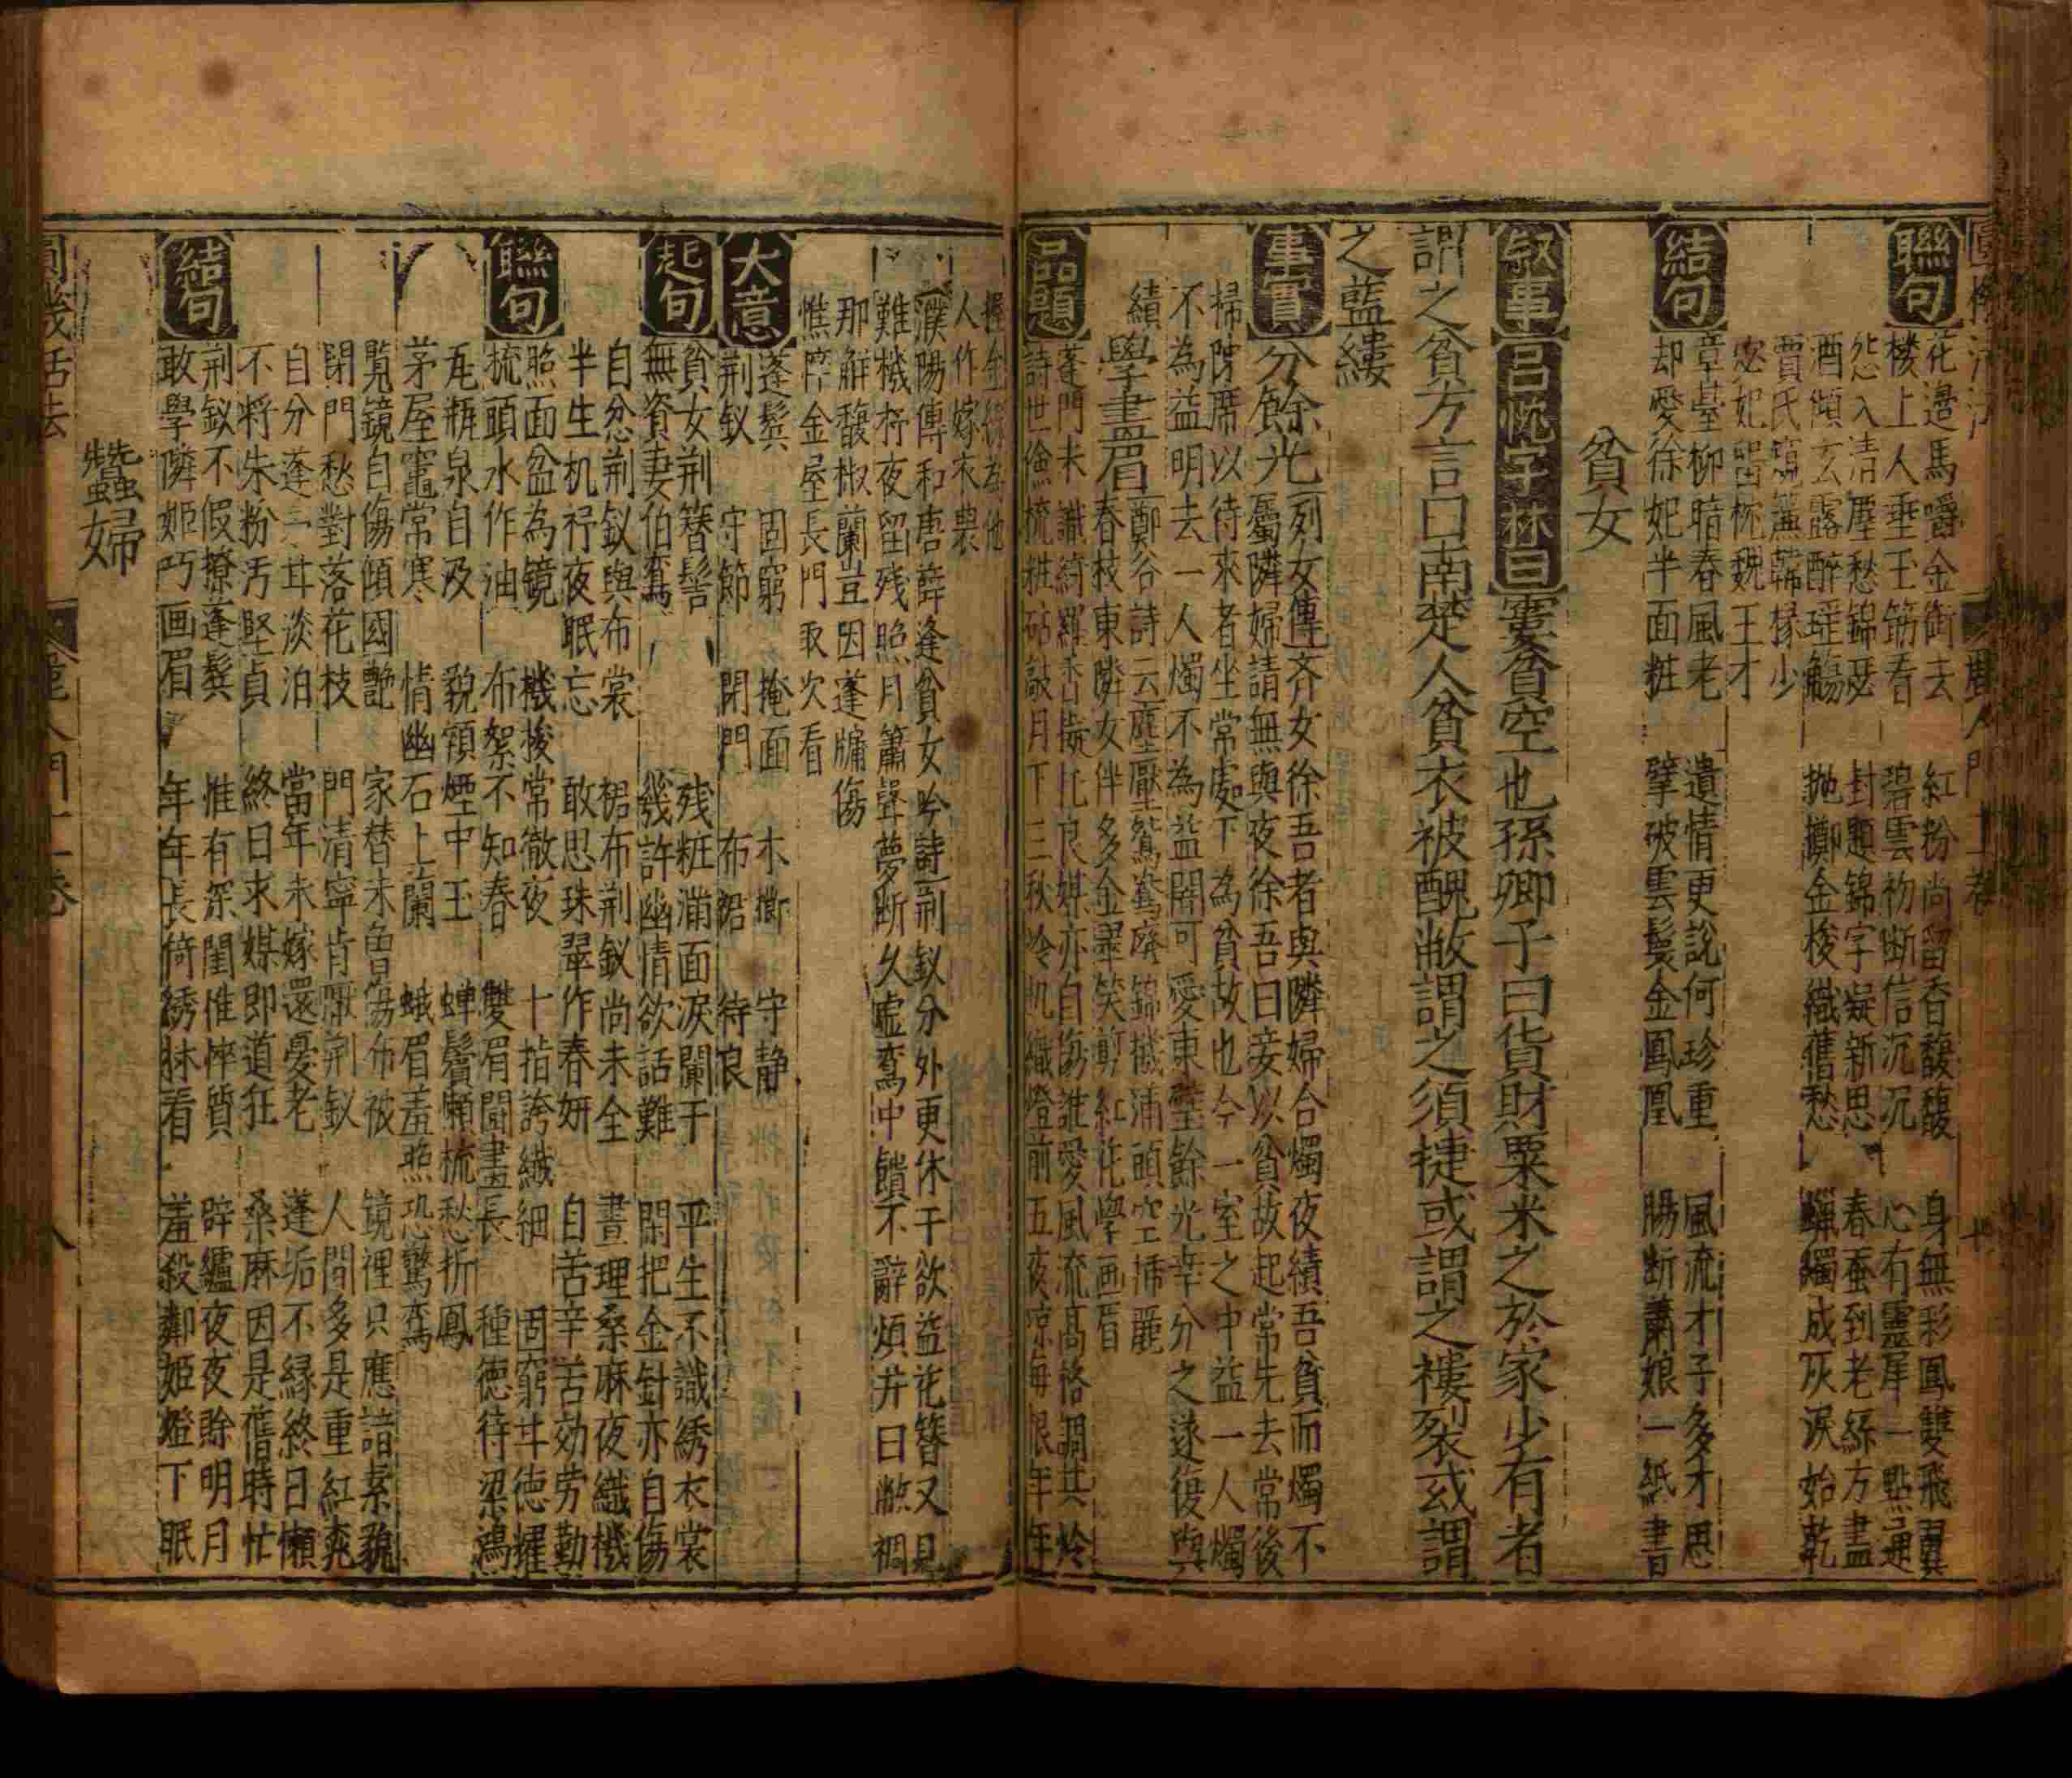 聯句
花邊馬嚼金銜去　紅粉尚留香馥馥　身無彩鳳雙飛翼
樓上人垂玉筯看　碧雲初断信沉沉　心有靈犀一點通
怨入清塵愁錦瑟　封題錦字凝新思　春蚕到老絲方盡
酒傾玄露醉瑶觴　抛擲金梭織舊愁　蠟燭成灰淚始乾
賈氏窺簾韓掾少
宓妃留枕魏王才
結句
章臺柳暗春風老　遺情更說何珍重　風流才子多才思
却愛徐妃半面粧　擘破雲鬟金鳳凰　腸断蕭娘一紙書
貧女
叙事
吕忱字林曰窶貧空也孫卿子曰貨財粟米之於家少有者
謂之貧方言曰南楚人貧衣被醜敝謂之須捷或謂之褸裂或謂
之藍縷
事實
分餘光
列女傳齐女徐吾者與隣婦合燭夜績吾貧而燭不
屬隣婦請無與夜徐吾曰妾以貧故起常先去常後
掃陳席以待來者坐常處下為貧故也今一室之中益一人燭
不為益明去一人燭不為益闇何愛東壁餘光幸分之遂復與
績
學畫眉
鄭谷詩云塵壓鴛鴦廢錦機滿頭空揷麗
春枝東隣女伴多金翠笑剪紅花學画眉
品題
蓬門未識綺羅香擬托良媒亦自傷誰愛風流高格調共怜
詩世儉梳粧砧敲月下三秋冷机織燈前五夜凉每恨年年
壓金線為他
人作嫁衣裳
濮陽傳和唐薛逢貧女吟詩荆釵分外更休干欲益花簪又見
難機杼夜留残照月簫聲夢断久虚鸞中饋不辭煩井臼敝裯
那解馥椒蘭豈因蓬牖傷
憔悴金屋長門取次看
大意
蓬鬂　固窮　掩面　木擲　守静
荆釵　守節　閉門　布裙　待良
起句
貧女荆簪髻　残粧滿面淚闌干　平生不識綉衣裳
無資妻伯鸞　幾許幽情欲話難　閑把金針亦自傷
自忿荆釵與布裳　裙布荆釵尚未全　晝理桑麻夜織機
半生机杼夜眠忘　敢思珠翠作春妍　自苦辛苦効劳勤
聯句
照面盆為镜　機梭常徹夜　十指誇纖細　固窮甘德耀
梳頭水作油　布絮不知春　雙眉鬪畫長　種德待梁鴻
瓦瓶泉自汲　貌領煙中玉　蝉鬢嬾梳愁折鳳
茅屋竈常寒　情幽石上蘭　蛾眉羞照恐驚鸞
覧鏡自傷傾國艷　家替未魯傷布被　鏡裡只應諳素貌
閉門愁對落花枝　門清寧肯厭荆釵　人間多是重紅粧
自分蓬　甘淡泊　當年未嫁還憂老　蓬垢不緣終日懶
不将朱粉汚堅貞　終日求媒即道狂　桑麻因是舊時忙
結句
荆釵不假撩蓬鬂　惟有深閨惟悴質　辟纑夜夜賒明月
敢學隣姬巧画眉　年年長倚綉牀看　羞殺鄰姬燈下眠
蠶婦